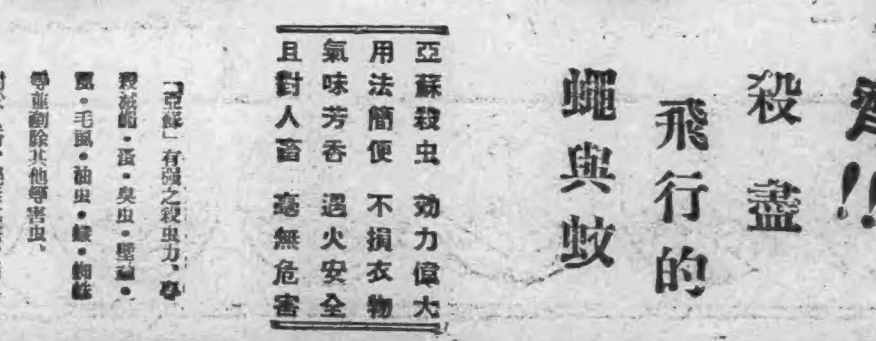 !!
殺盡
飛行的
蠅與蚊
亞蘇殺虫 効力偉大
用法簡便 不損衣物
氣味芳香 遇火安全
且對人畜 毫無危害
「亞蘇」有强之殺虫力、專
殺滅蠅・蚤・臭虫・壁蝨・
虱・毛虱・油虫・蟻・蜘蛛
等並剷除其他等害虫、